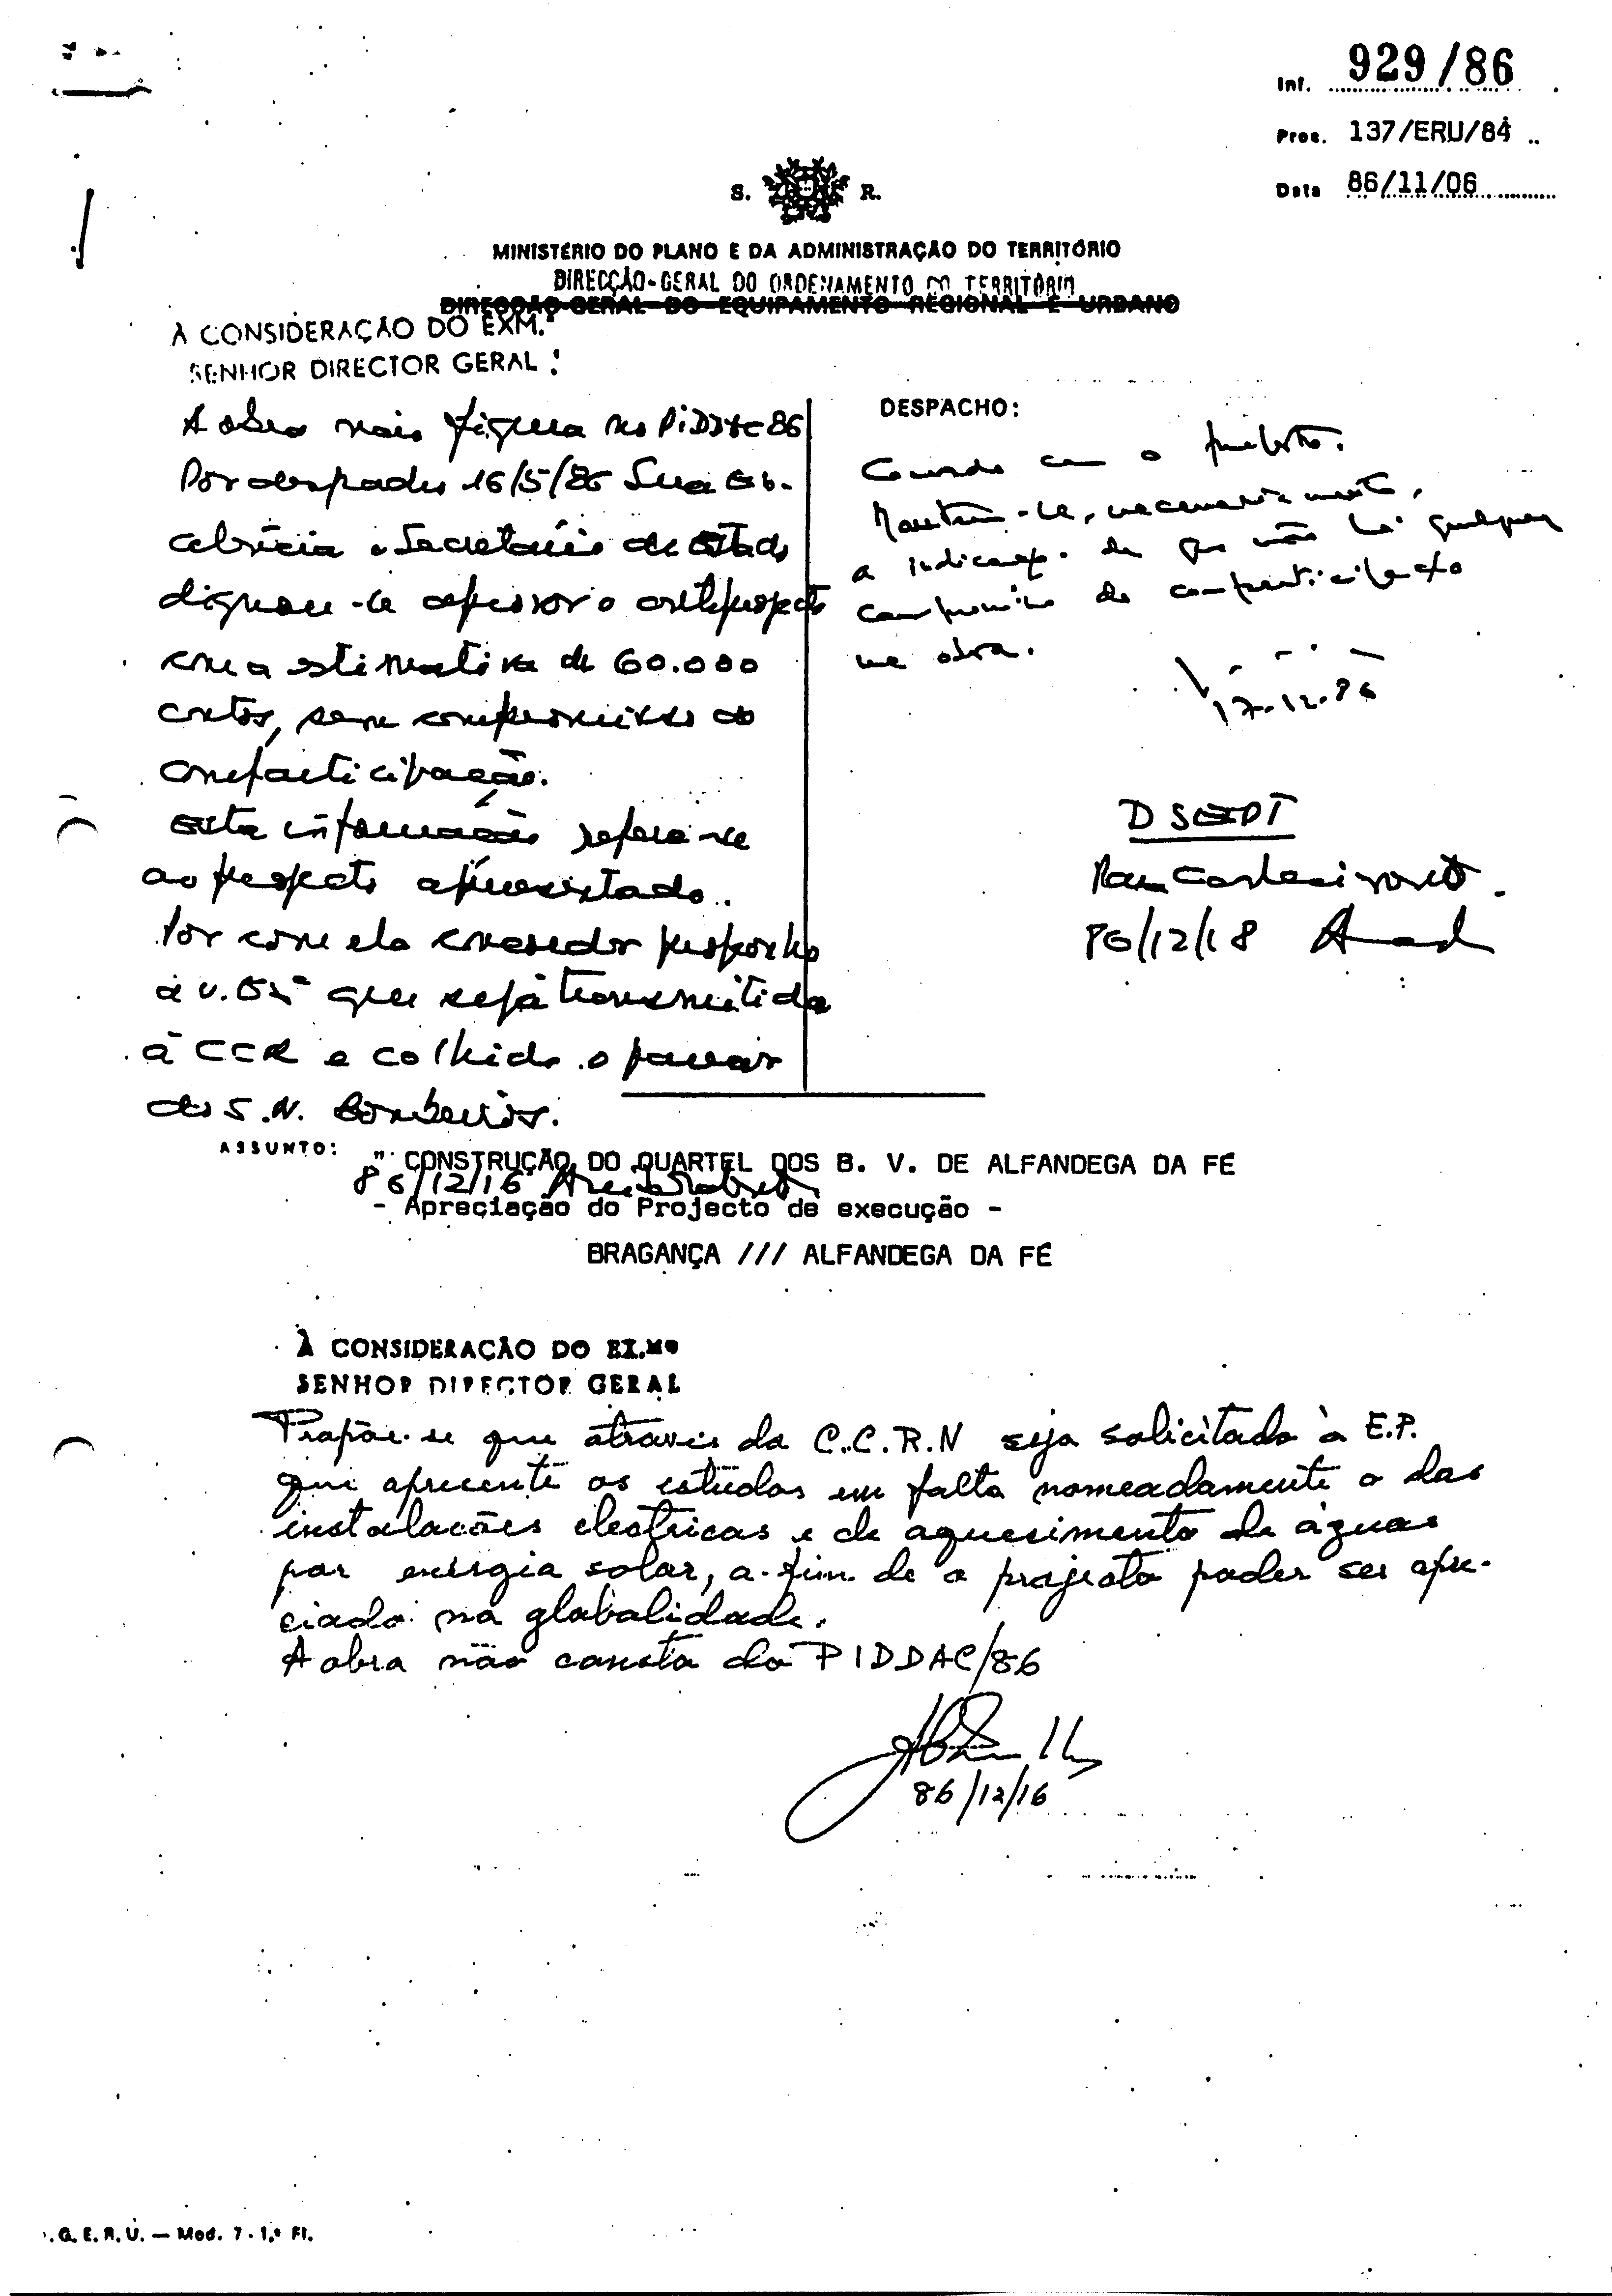 Inf. 929/86
Proc. 137/ERU/84
Data 86/11/06
S. R.
MINISTÉRIO DO PLANO E DA ADMINISTRAÇÃO DO TERRITÓRIO
DIRECÇÃO-GERAL DO ORDENAMENTO DO TERRITÓRIO
DIRECÇÃO-GERAL DO EQUIPAMENTO REGIONAL E URBANO
À CONSIDERAÇÃO DO EXM.º
SENHOR DIRECTOR GERAL :
A obra não figura no PIDDAC 86
Por despacho 16/5/86 Sua Ex.
celência o Secretário de Estado
dignou-se aprovar o anteprojecto
com a estimativa de 60.000
contos, sem compromisso de
comparticipação.
Esta informação refere-se
ao projecto apresentado.
Por com ela concordar proponho
a V. Exª que seja transmitida
à CCR e colhido o parecer
do S.N. Bombeiros.
DESPACHO:
Concordo com o proposto.
Mantém-se, necessariamente,
a indicação de que não há qualquer
compromisso de comparticipação
na obra.
17.12.86
DSEPT
86/12/18
ASSUNTO: " CONSTRUÇÃO DO QUARTEL DOS B. V. DE ALFANDEGA DA FÉ
86/12/16
- Apreciação do Projecto de execução -
BRAGANÇA /// ALFANDEGA DA FÉ
À CONSIDERAÇÃO DO EX.Mº
SENHOR DIRECTOR GERAL
Propõe-se que através da C.C.R.N seja solicitado à E.P.
que apresente os estudos em falta nomeadamente o das
instalações electricas e de aquecimento de águas
por energia solar, a fim de o projecto poder ser apre-
ciado na globalidade.
A obra não consta do PIDDAC/86
86/12/16
.G.E.R.U. — Mod. 7 - 1.ª Fl.